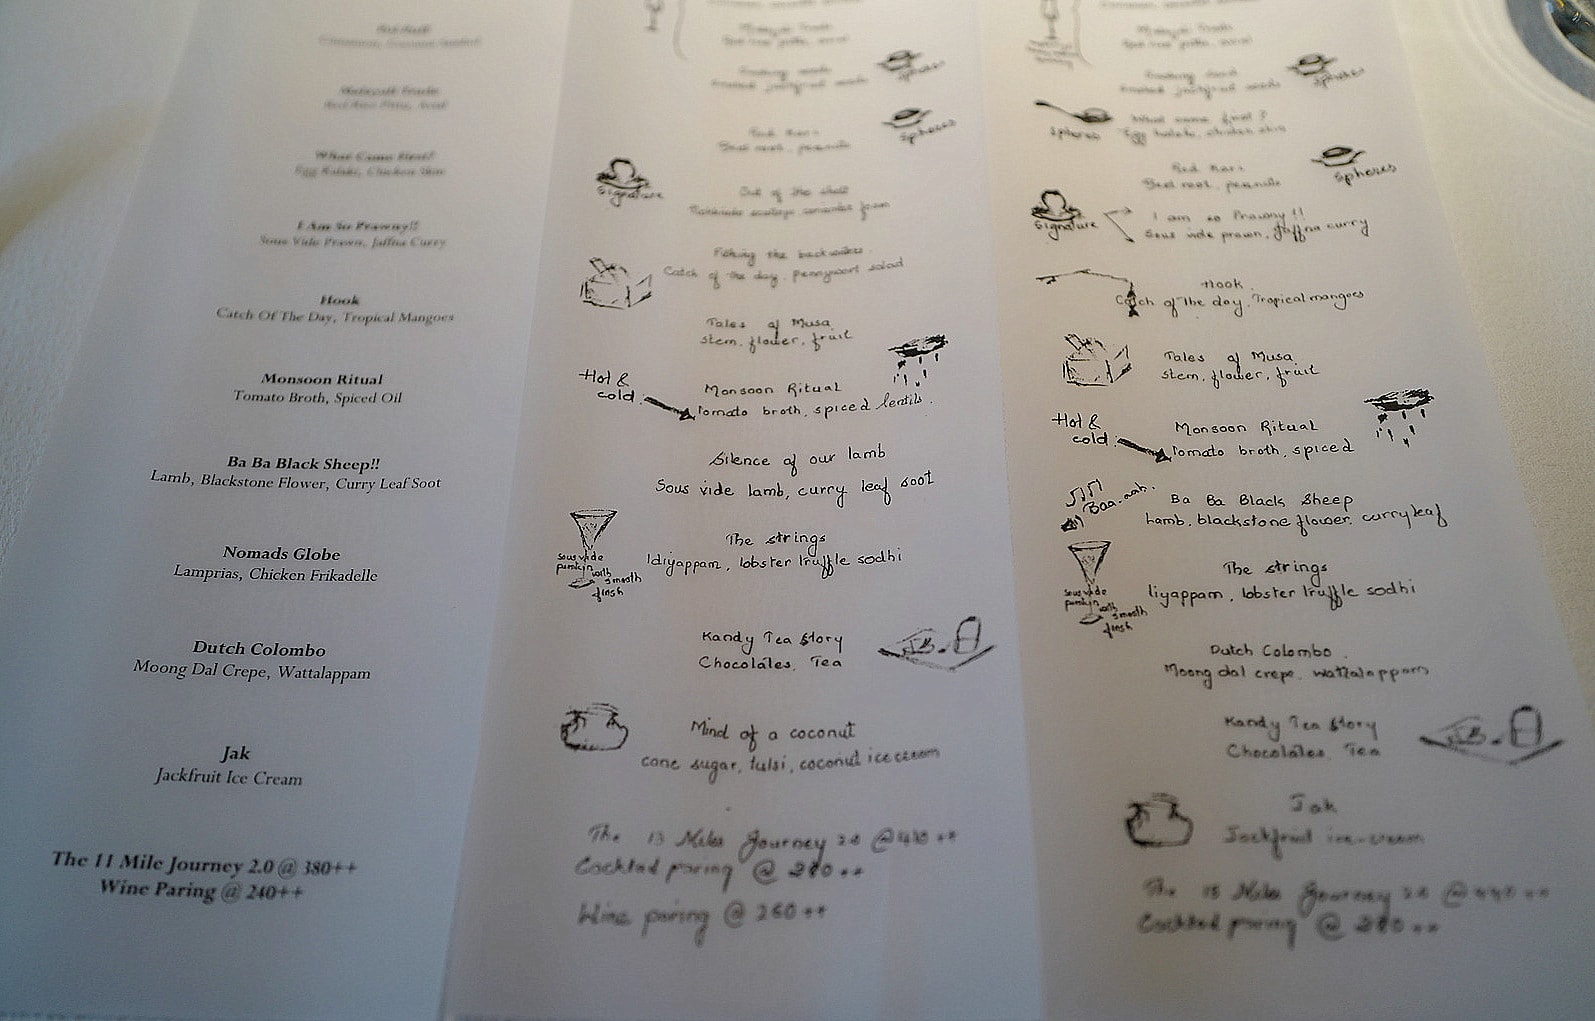 Malayali Trade
Red Rice Pitta, Acral
What Came First?
Egg Kalaki, Chicken Skin
I Am So Prawny!!
Sous Vide Prawn, Jaffna Curry
Hook
Catch Of The Day, Tropical Mangoes
Monsoon Ritual
Tomato Broth, Spiced Oil
Ba Ba Black Sheep!!
Lamb, Blackstone Flower, Curry Leaf Soot
Nomads Globe
Lamprias, Chicken Frikadelle
Dutch Colombo
Moong Dal Crepe, Wattalappam
Jak
Jackfruit Ice Cream
The 11 Mile Journey 2.0 @ 380++
Wine Paring @ 240++
Spheres
Red Kari
Beet root, peanuts
Signature
Out of the shell
Fishing the backwaters
Catch of the day, pennywort salad
Tales of Musa
stem, flower, fruit
Hot &
cold
Monsoon Ritual
Tomato broth, spiced lentils.
Silence of our lamb
Sous vide lamb, curry leaf soot
The strings
Idiyappam, lobster truffle sodhi
Sous vide
pumkin
with
smooth
finsh
Kandy Tea Story
Chocolates, Tea
Mind of a coconut
cane sugar, tulsi, coconut ice cream
The 13 Miles Journey 2.0 @ 410 ++
Cocktail paring @ 280 ++
Wine paring @ 260 ++
Spheres
What came first?
Egg kalaki, chicken skin
Spheres
Red Kari
Beet root, peanuts
Spheres
Signature
I am so Prawny!!
Sous vide prawn, Jaffna curry
Hook
Catch of the day, Tropical mangoes
Tales of Musa
stem, flower, fruit
Hot &
cold
Monsoon Ritual
Tomato broth, spiced
Baa-aah.
Ba Ba Black Sheep
Lamb, blackstone flower, curry leaf
The strings
Iiyappam, lobster truffle sodhi
Sous vide
pumkin
with
smooth
finsh
Dutch Colombo
Moong dal crepe, wattalappam
Kandy Tea Story
Chocolates, Tea
Jak
Jackfruit ice-cream
The 15 Miles Journey 2.0 @
Cocktail paring @ 280 ++